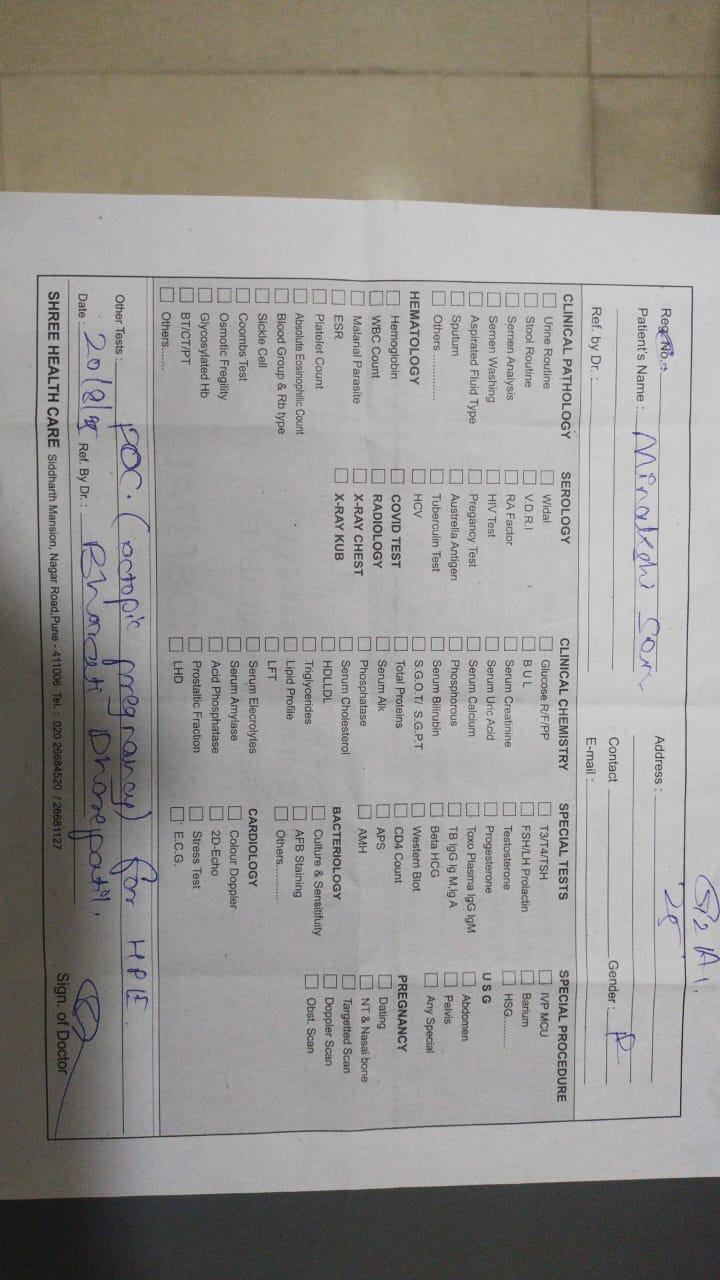 Reg No.:
Patient's Name : Minakshi
Address :
28
Contact
Gender : F
Ref. by Dr. :
E-mail :
CLINICAL PATHOLOGY
Urine Routine
Stool Routine
Semen Analysis
Semen Washing
Aspirated Fluid Type
Sputum
Others .............
HEMATOLOGY
Hemoglobin
WBC Count
Malarial Parasite
ESR
Platelet Count
Absolute Eosinophilic Count
Blood Group & Rb type
Sickle Cell
Coombs Test
Osmotic Fregility
Glycosylated Hb
BT/CT/PT
Others.......
SEROLOGY
Widal
V.D.R.I
RA Factor
HIV Test
Pregancy Test
Austrella Antigen
Tuberculin Test
HCV
COVID TEST
RADIOLOGY
X-RAY CHEST
X-RAY KUB
CLINICAL CHEMISTRY
Glucose R/F/PP
B U L
Serum Creatinine
Serum Uric Acid
Serum Calcium
Phosphorous
Serum Bilirubin
S.G.O.T/ S.G.P.T
Total Proteins
Serum Alk
Phosphatase
Serum Cholesterol
HDLLDL
Triglycerides
Lipid Profile
LFT
Serum Elecrolytes
Serum Amylase
Acid Phosphatase
Prostaltic Fraction
LHD
SPECIAL TESTS
T3/T4/TSH
FSH/LH Prolactin
Testosterone
Progesterone
Toxo Plasma IgG IgM
TB IgG Ig M.Ig A
Beta HCG
Western Blot
CD4 Count
APS
AMH
BACTERIOLOGY
Culture & Sensitifuity
AFB Staining
Others...........
CARDIOLOGY
Colour Doppler
2D-Echo
Stress Test
E.C.G.
SPECIAL PROCEDURE
IVP MCU
Barium
HSG..........
U S G
Abdomen
Pelvis
Any Special
PREGNANCY
Dating
NT & Nasal bone
Targetted Scan
Doppler Scan
Obst. Scan
Other Tests : POC. (octopic pregnancy) for HPE
Date : 20/8/ Ref. By Dr. : Bharati Dhorepatil.
Sign. of Doctor
SHREE HEALTH CARE Siddharth Mansion, Nagar Road,Pune - 411006 Tel. : 020 26684520 / 26681127